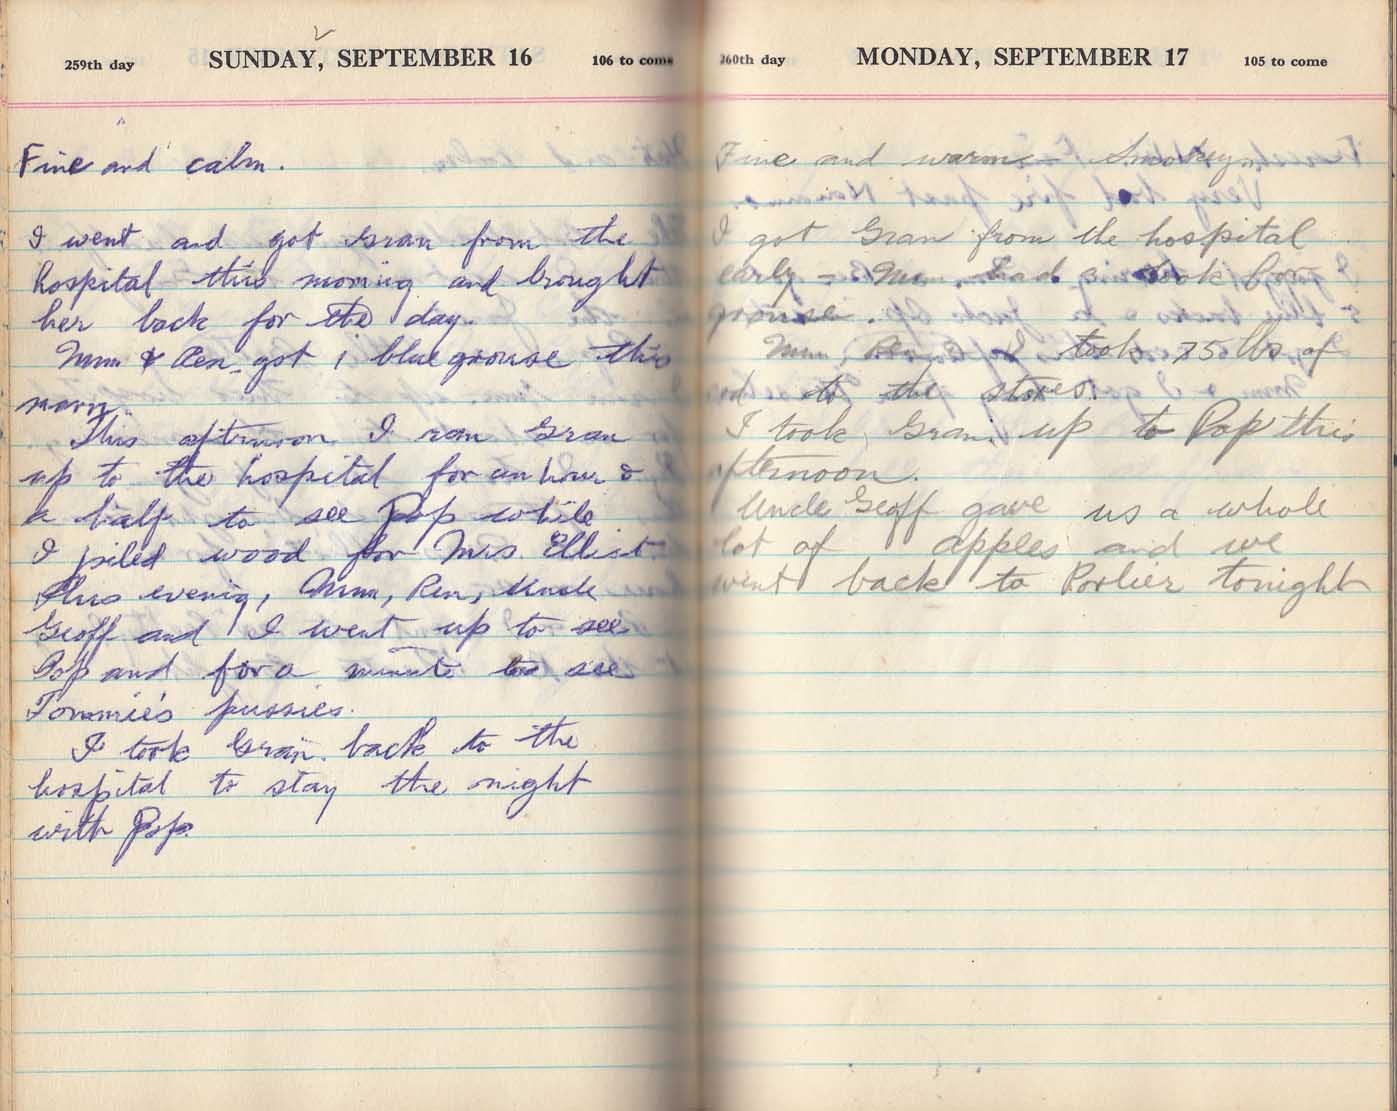 259th day SUNDAY, SEPTEMBER 16 106 to come
Fine and calm.
I went and got Gran from the
hospital this morning and brought
her back for the day.
Mum & Ren got 1 blue grouse this
morn.
This afternoon I ran Gran
up to the hospital for an hour &
a half to see Pop while
I piled wood for Mrs. Elliot.
This evenig, Mum, Ren, Uncle
Geoff and I went up to see
Pop and for a minute to see
Tommie's pussies.
I took Gran back to the
hospital to stay the night
with Pop.
260th day MONDAY, SEPTEMBER 17 105 to come
Fine and warm – Smokey.
I got Gran from the hospital
early – Mum had a look for
grouse.
Mum, Ren & I took 75 lbs of
to the stores.
I took Gran up to Pop this
afternoon.
Uncle Geoff gave us a whole
lot of apples and we
went back to Porlier tonight